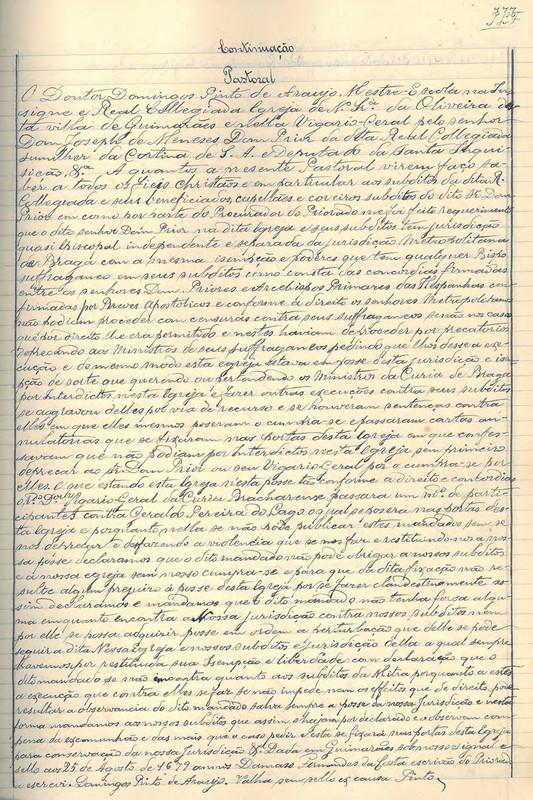 727
Continuação
Pastoral
O Doutor Domingos Pinto de Araujo, Mestre-Escola na In-
signe e Real Collegiada Igreja de N. Srª da Oliveira des-
ta villa de Guimarães e nella Vigario-Geral pelo senhor
Dom Joseph de Meneses Dom Prior da dita Real Collegiada
Sumilher da Cortina de S. A. e Deputado da Santa Inqui-
sição, &ª A quantos a presente Pastoral virem faço sa-
ber a todos os fieis Christãos e em particular aos subditos da dita R.
Collegiada e seus beneficiados, capellães e coreiros subditos do dito Sr. Dom
Prior em como por parte do Procurador do Priorado me foi feito requerimento
que o dito senhor Dom Prior na dita Igreja e seus subditos tem jurisdicção
quasi Episcopal independente e separada da jurisdicção Metropolitana
de Braga com a mesma isempção e poderes que tem qualquer Bispo
suffraganeo em seus subditos como consta das concordias firmadas
entre os senhores Dom Priores e Arcebispos Primazes das Hespanhas con-
firmadas por Breves Apostolicos e conforme a direito os senhores Metropolitanos
não podiam proceder com censuras contra seus suffraganeos senão nos casos
que por direito lhe era permittido e nestes haviam de proceder por precatorios
deprecando aos Ministros de seus suffraganeos pedindo que lhos desse a exe-
cução e do mesmo modo esta egreja estava em posse desta jurisdicção e isem-
pção de sorte que querendo ou pertendendo os Ministros da Curia de Braga
por Interdictos nesta Igreja e fazer outras execuções contra seus subditos
se aggravou delles por via de recurso e se houveram sentenças contra
elles em que elles mesmos poseram o cumpra-se e passaram cartas an-
nulatorias que se fixaram nas portas desta Igreja em que confes-
savam que não podiam por Interdictos nesta Igreja sem primeiro
deprecar ao Sr. Dom Prior ou seu Vigario-Geral por o cumpra-se por
elles. E que estando esta Igreja nesta posse tão conforme a direito e concordias
o Vigario-Geral da Curia Bracharense, passara um m.º de parti-
cipantes contra Geraldo Pereira do Lago o qual se posera nas portas des-
ta Igreja e porquanto nella se não pode publicar estes mandados sem se
nos deprecar e desfazendo a violencia que se nos faz e restituindo-nos a nos-
sa posse declaramos que o dito mandado não pode obrigar a nossos subditos
e a nossa egreja sem nosso cumpra-se e para que da dita fixação não re-
sulte algum prejuizo á posse desta Igreja por se fazer clandestinamente as-
sim declaramos e mandamos que o dito mandado não tenha forsa algu-
ma emquanto encontra a Nossa jurisdicção contra nossos subditos nem
por elle se possa adquirir posse em ordem a perturbação que delle se pode
seguir a dita Nossa Egreja e nossos subditos e jurisdicção della a qual sempre
havemos por restituida sua Isempção e Liberdade com declaração que o
dito mandado se não encontra quanto aos subditos da Mitra porquanto a estes
a execução que contra elles se faz se não impede nem os effeitos que de direito pode
resultar a observancia do dito mandado salva sempre a posse da nossa Jurisdicção e nesta
forma mandamos aos nossos subditos que assim o hajam por declarado e o observem com
pena de excomunhão e das mais que o caso pedir Esta se fixará nas portas desta Igreja
para conservação da nossa Jurisdicção &ª Dada em Guimarães sob nosso signal e
sello aos 25 de Agosto de 1679 annos Damaso Fernandes da Costa escrivão do Priorado
a escrevi. Domingos Pinto de Araujo. Valha sem sello ex causa Pinto.